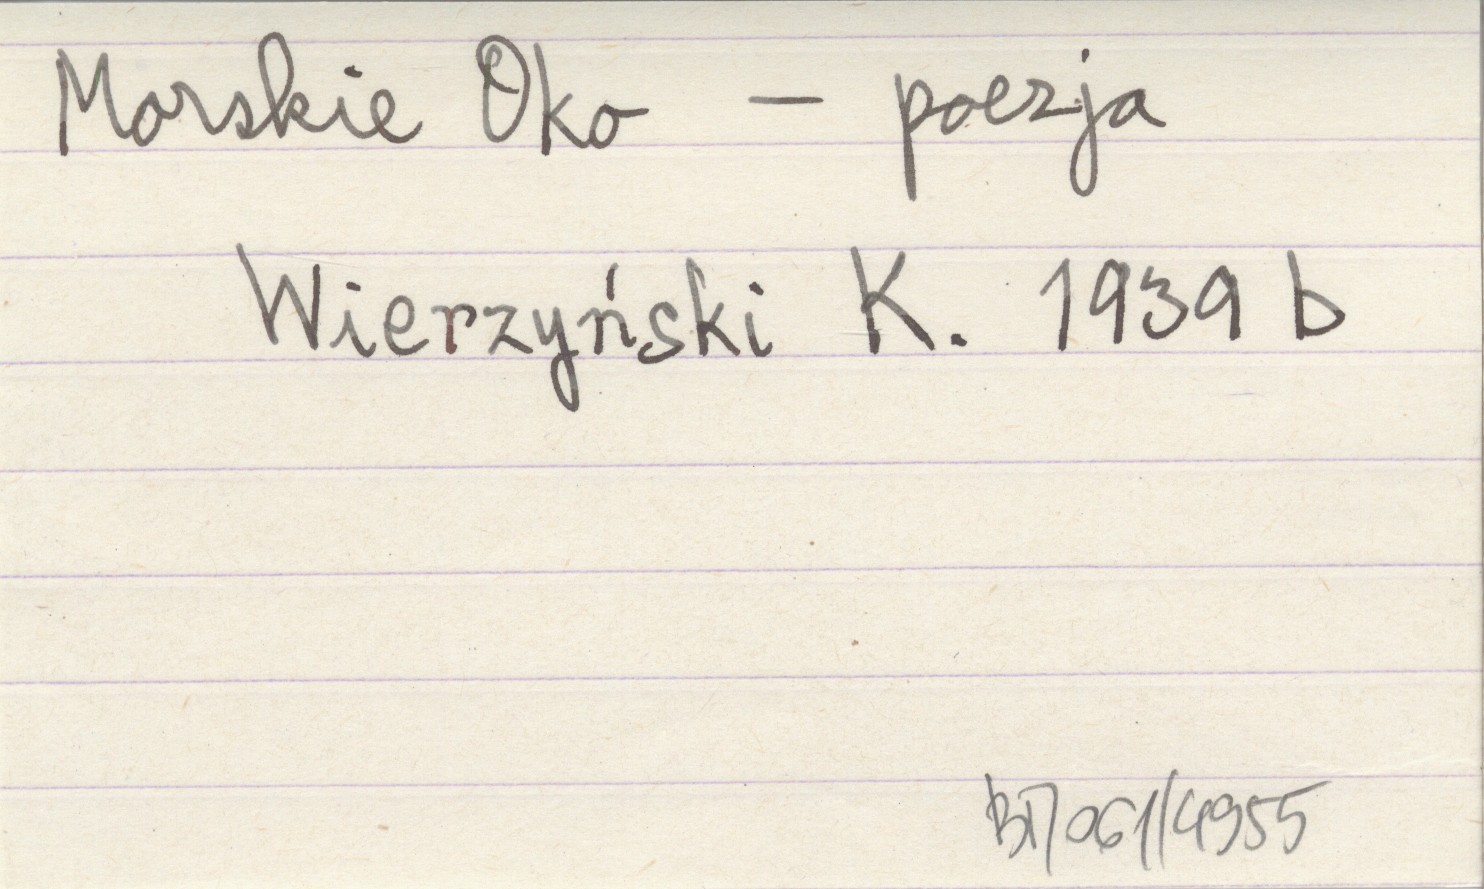 Morskie Oko — poezja
Wierzyński K. 1939 b
BP/061/4955